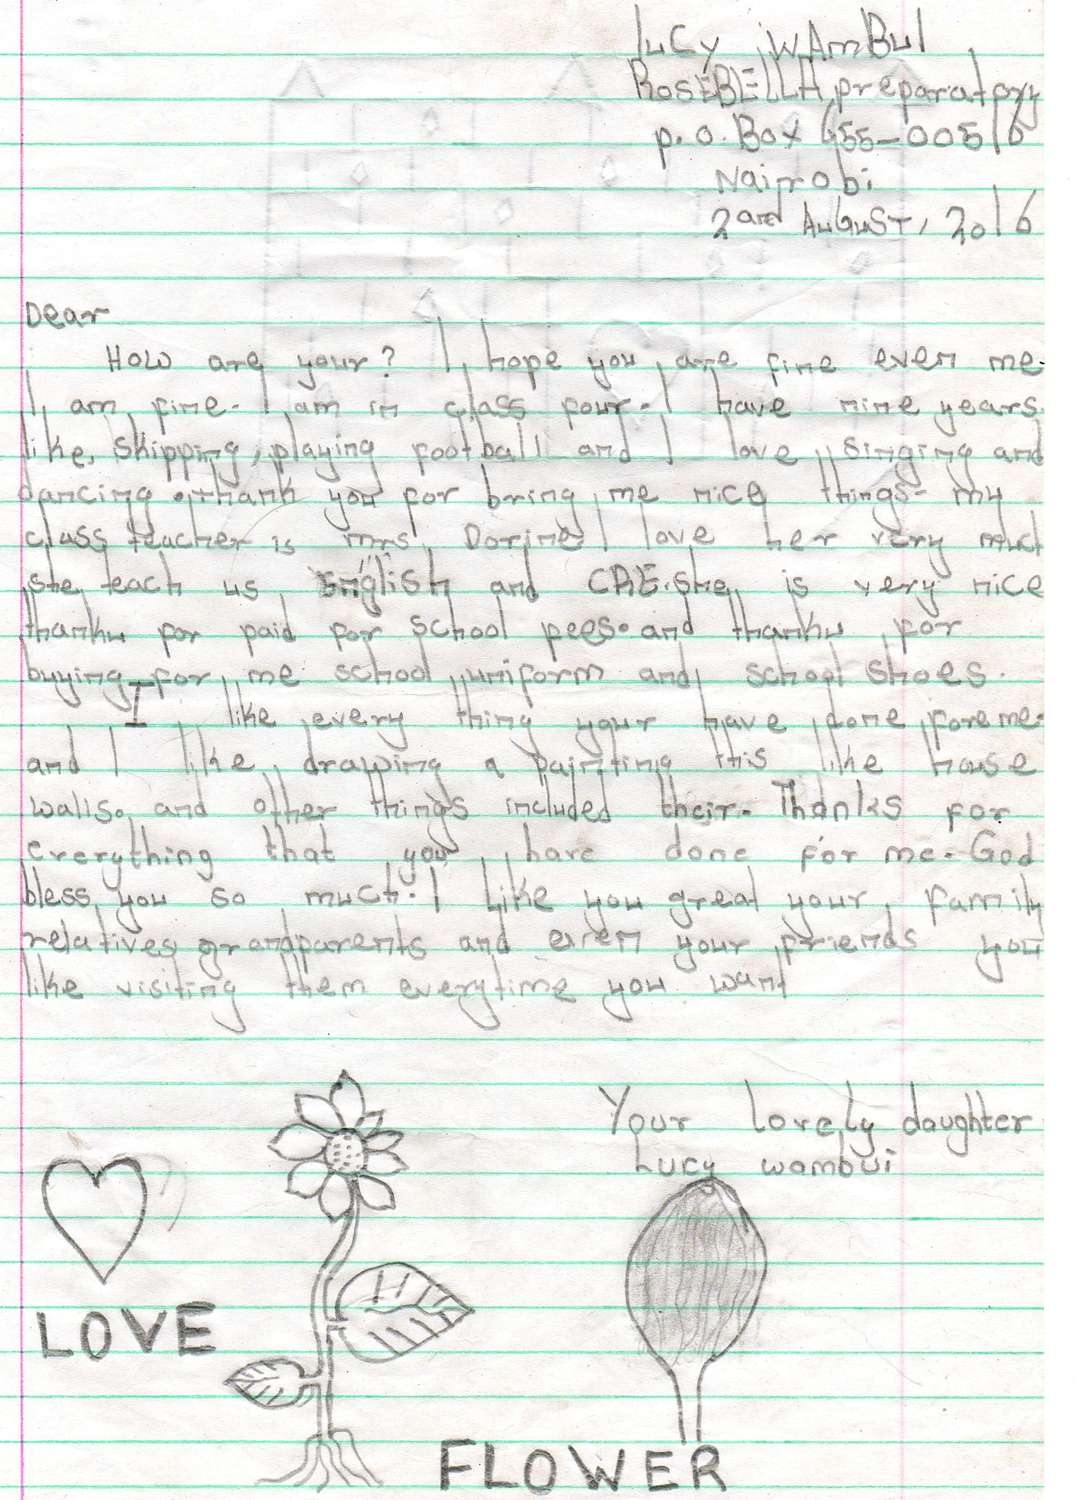 Lucy WAmBUI
ROSEBELLA preparatory
p.o. Box 655-00516
Nairobi
2and AuGuST, 2016
Dear
How are your? I hope you are fine even me.
I am fine. I am in class four. I have nine years.
like, skipping, playing football and I love singing and
dancing. thank you for bring me nice things. my
class teacher is mrs Dorine I love her very much
she teach us English and CRE. She is very nice
thanku for paid for school fees. and thanku for
buying for me school uniform and school shoes.
I like every thing your have done foreme.
and I like drawing a painting this like house
walls. and other things included their. Thanks for
everything that you have done for me. God
bless you so much. I like you great your family
relatives grandparents and even your friends you
like visiting them everytime you want
Your lovely daughter
Lucy wambui
LOVE
FLOWER